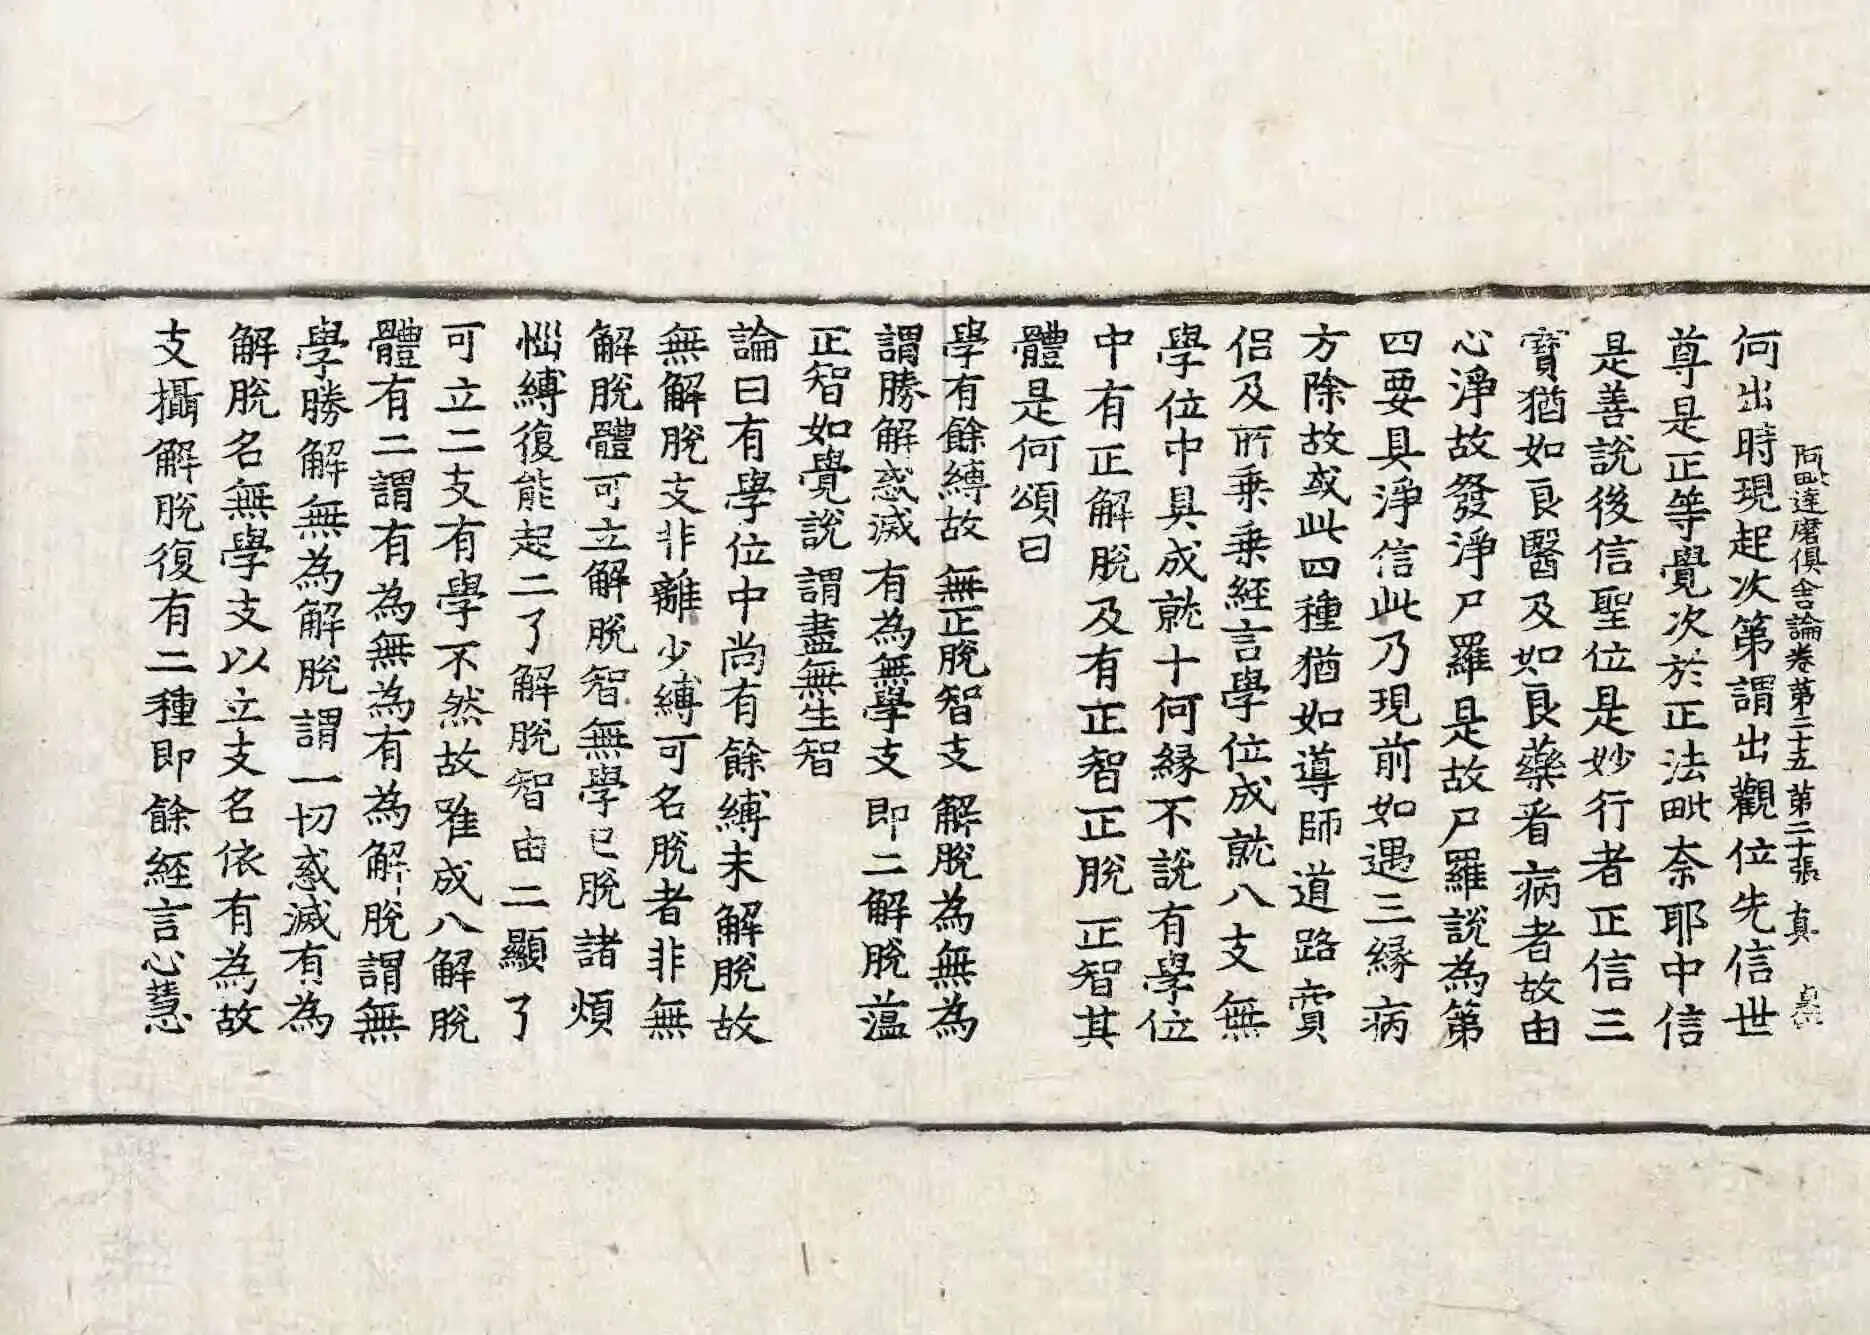 阿毗達磨俱舍論卷第二十五 第二十張 真
何出時現起次第謂出觀位先信世
尊是正等覺次於正法毗奈耶中信
是善說後信聖位是妙行者正信三
寶猶如良醫及如良藥看病者故由
心淨故發淨尸羅是故尸羅說為第
四要具淨信此乃現前如遇三緣病
方除故或此四種猶如導師道路賣
侶及所乘乘經言學位成就八支無
學位中具成就十何緣不說有學位
中有正解脫及有正智正脫正智其
體是何頌曰
學有餘縛故 無正脫智支 解脫為無為
謂勝解惑滅 有為無學支 即二解脫蕰
正智如覺說 謂盡無生智
論曰有學位中尚有餘縛未解脫故
無解脫支非離少縛可名脫者非無
解脫體可立解脫智無學已脫諸煩
惱縛復能起二了解脫智由二顯了
可立二支有學不然故唯成八解脫
體有二謂有為無為有為解脫謂無
學勝解無為解脫謂一切惑滅有為
解脫名無學支以立支名依有為故
支攝解脫復有二種即餘經言心慧